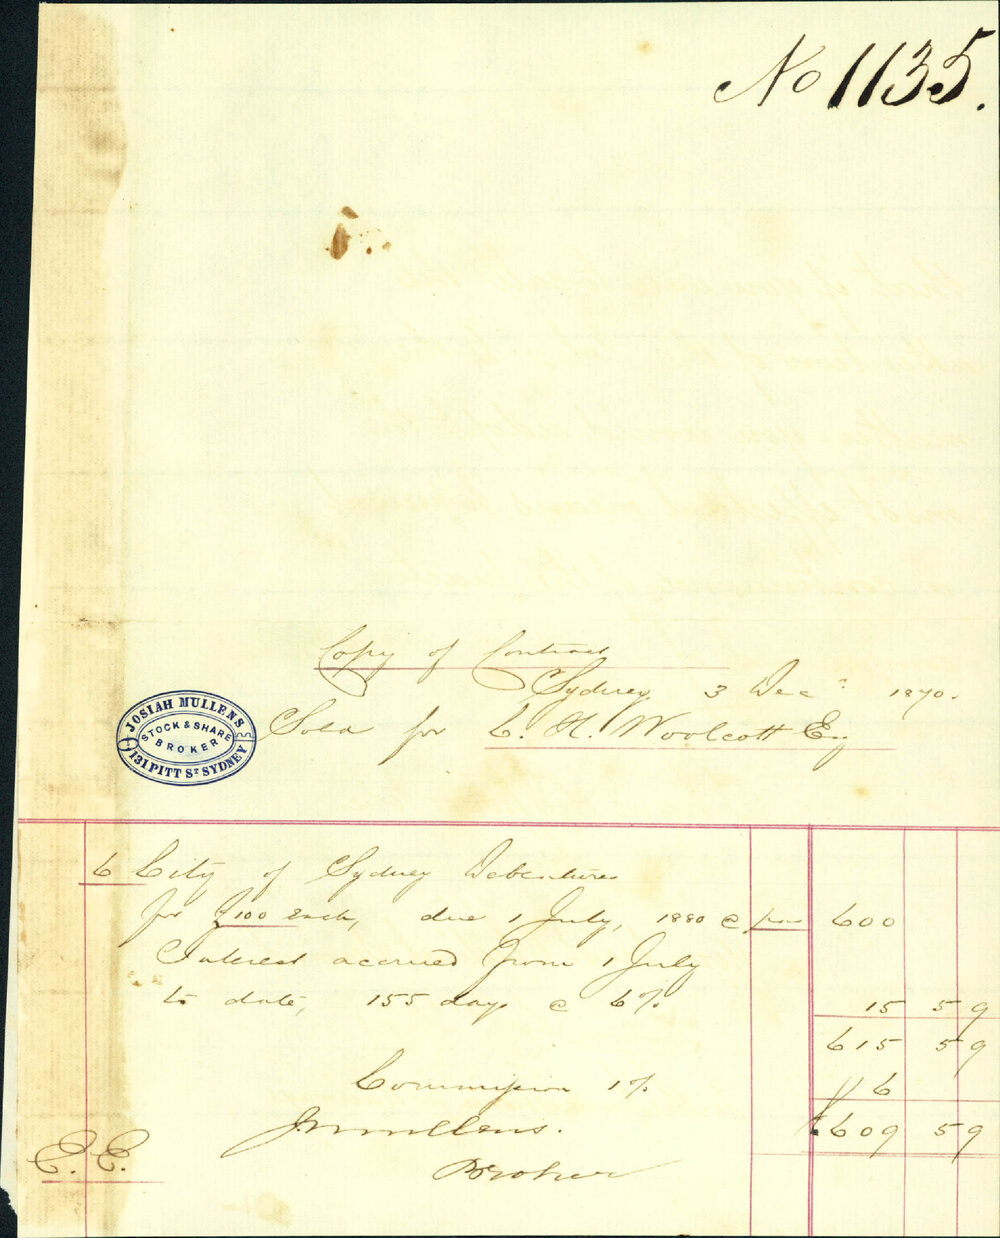 No 1135.
Copy of Contract
Sydney, 3 Decr 1870.
Sold for C. H. Woolcott Esq
JOSIAH MULLENS
STOCK & SHARE
BROKER
131 PITT ST SYDNEY
6 City of Sydney Debentures
for £100 each, due 1 July, 1880 @ par 600
Interest accrued from 1 July
to date, 155 days @ 6% 15 5 9
615 5 9
Commission 1% 6
J Mullens. £609 5 9
Broker
E. E.